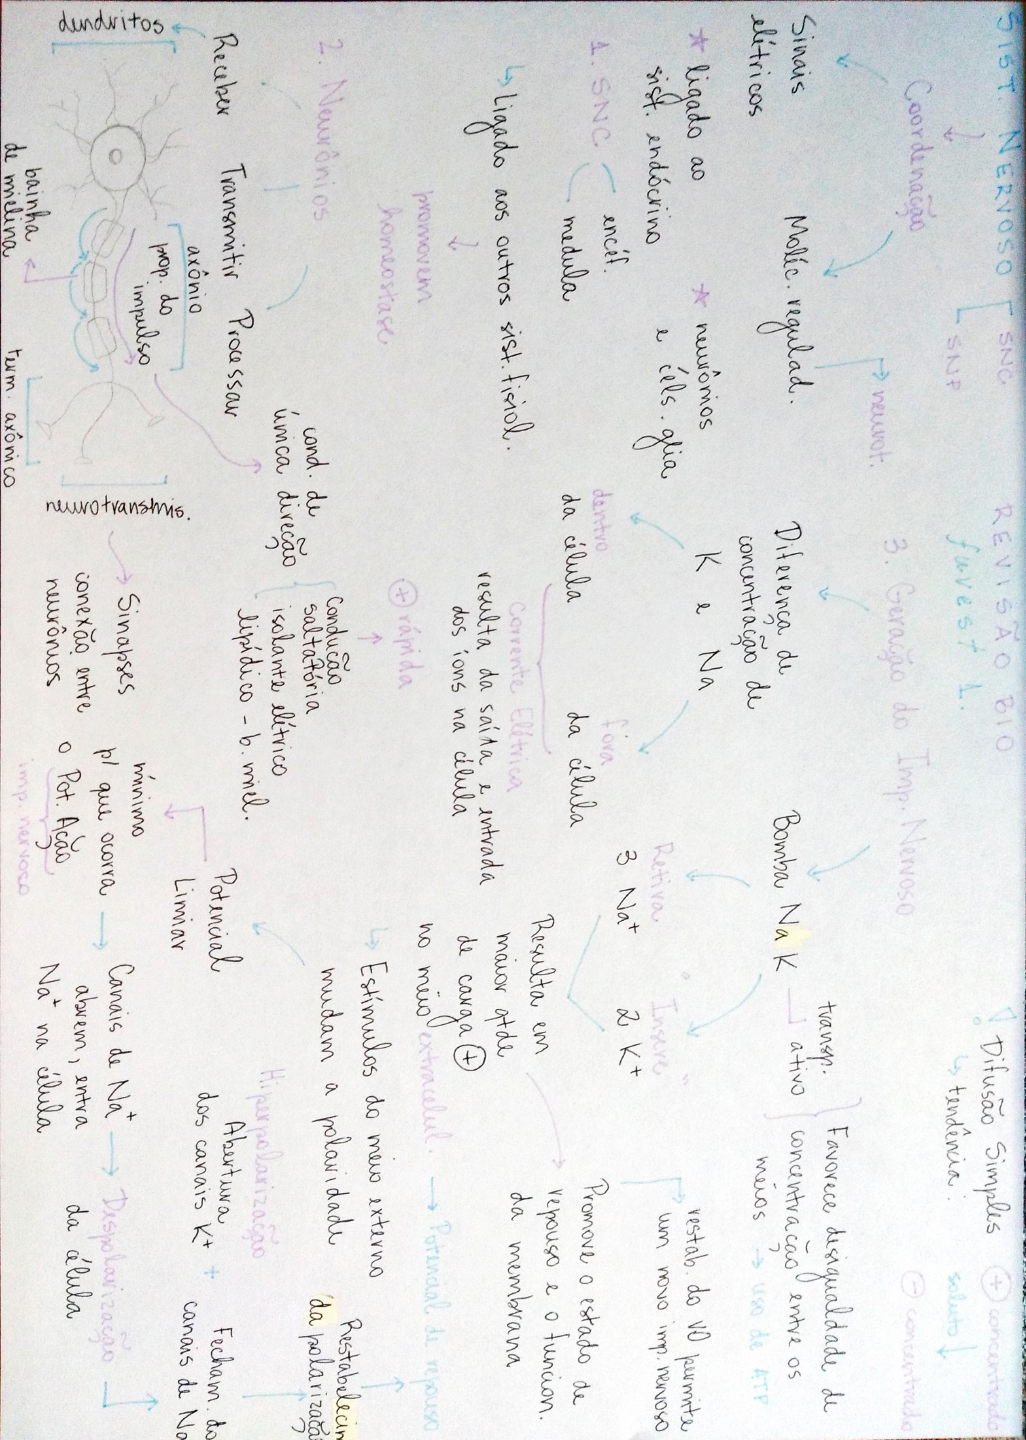 SIST. NERVOSO
SNC
SNP
REVISÃO BIO
fuvest 1.
Coordenação
Sinais
elétricos
Moléc. regulad.
neurot.
* ligado ao
sist. endócrino
* neurônios
e céls. glia
1. SNC
encéf.
medula
↳ Ligado aos outros sist. fisiol.
promovem
homeostase
2. Neurônios
Receber
Transmitir
Processar
dendritos
axônio
prop. do
impulso
bainha
de mielina
term. axônico
neurotransmis.
cond. de
única direção
Condução
saltatória
isolante elétrico
lipídico - b. miel.
+ rápida
Sinapses
conexão entre
neurônios
3. Geração do Imp. Nervoso
Diferença de
concentração de
K e Na
dentro
da célula
fora
da célula
Corrente Elétrica
resulta da saída e entrada
dos íons na célula
Bomba Na K
transp.
ativo
Favorece desigualdade de
concentração entre os
meios → uso de ATP
Retira
3 Na+
"Insere"
2 K+
Resulta em
maior qtde
de carga +
no meio extracelul. → Potencial de repouso
Promove o estado de
repouso e o funcion.
da membrana
restab. do VO permite
um novo imp. nervoso
! Difusão Simples
↳ tendência:
+ concentrado
soluto ↓
- concentrado
↳ Estímulos do meio externo
mudam a polaridade
Potencial
Limiar
mínimo
p/ que ocorra
o Pot. Ação
imp. nervoso
Canais de Na+
abrem, entra
Na+ na célula
Despolarização
da célula
Hiperpolarização
Abertura
dos canais K+
+
Fecham. do
canais de Na
Restabelecim
da polarizaçã